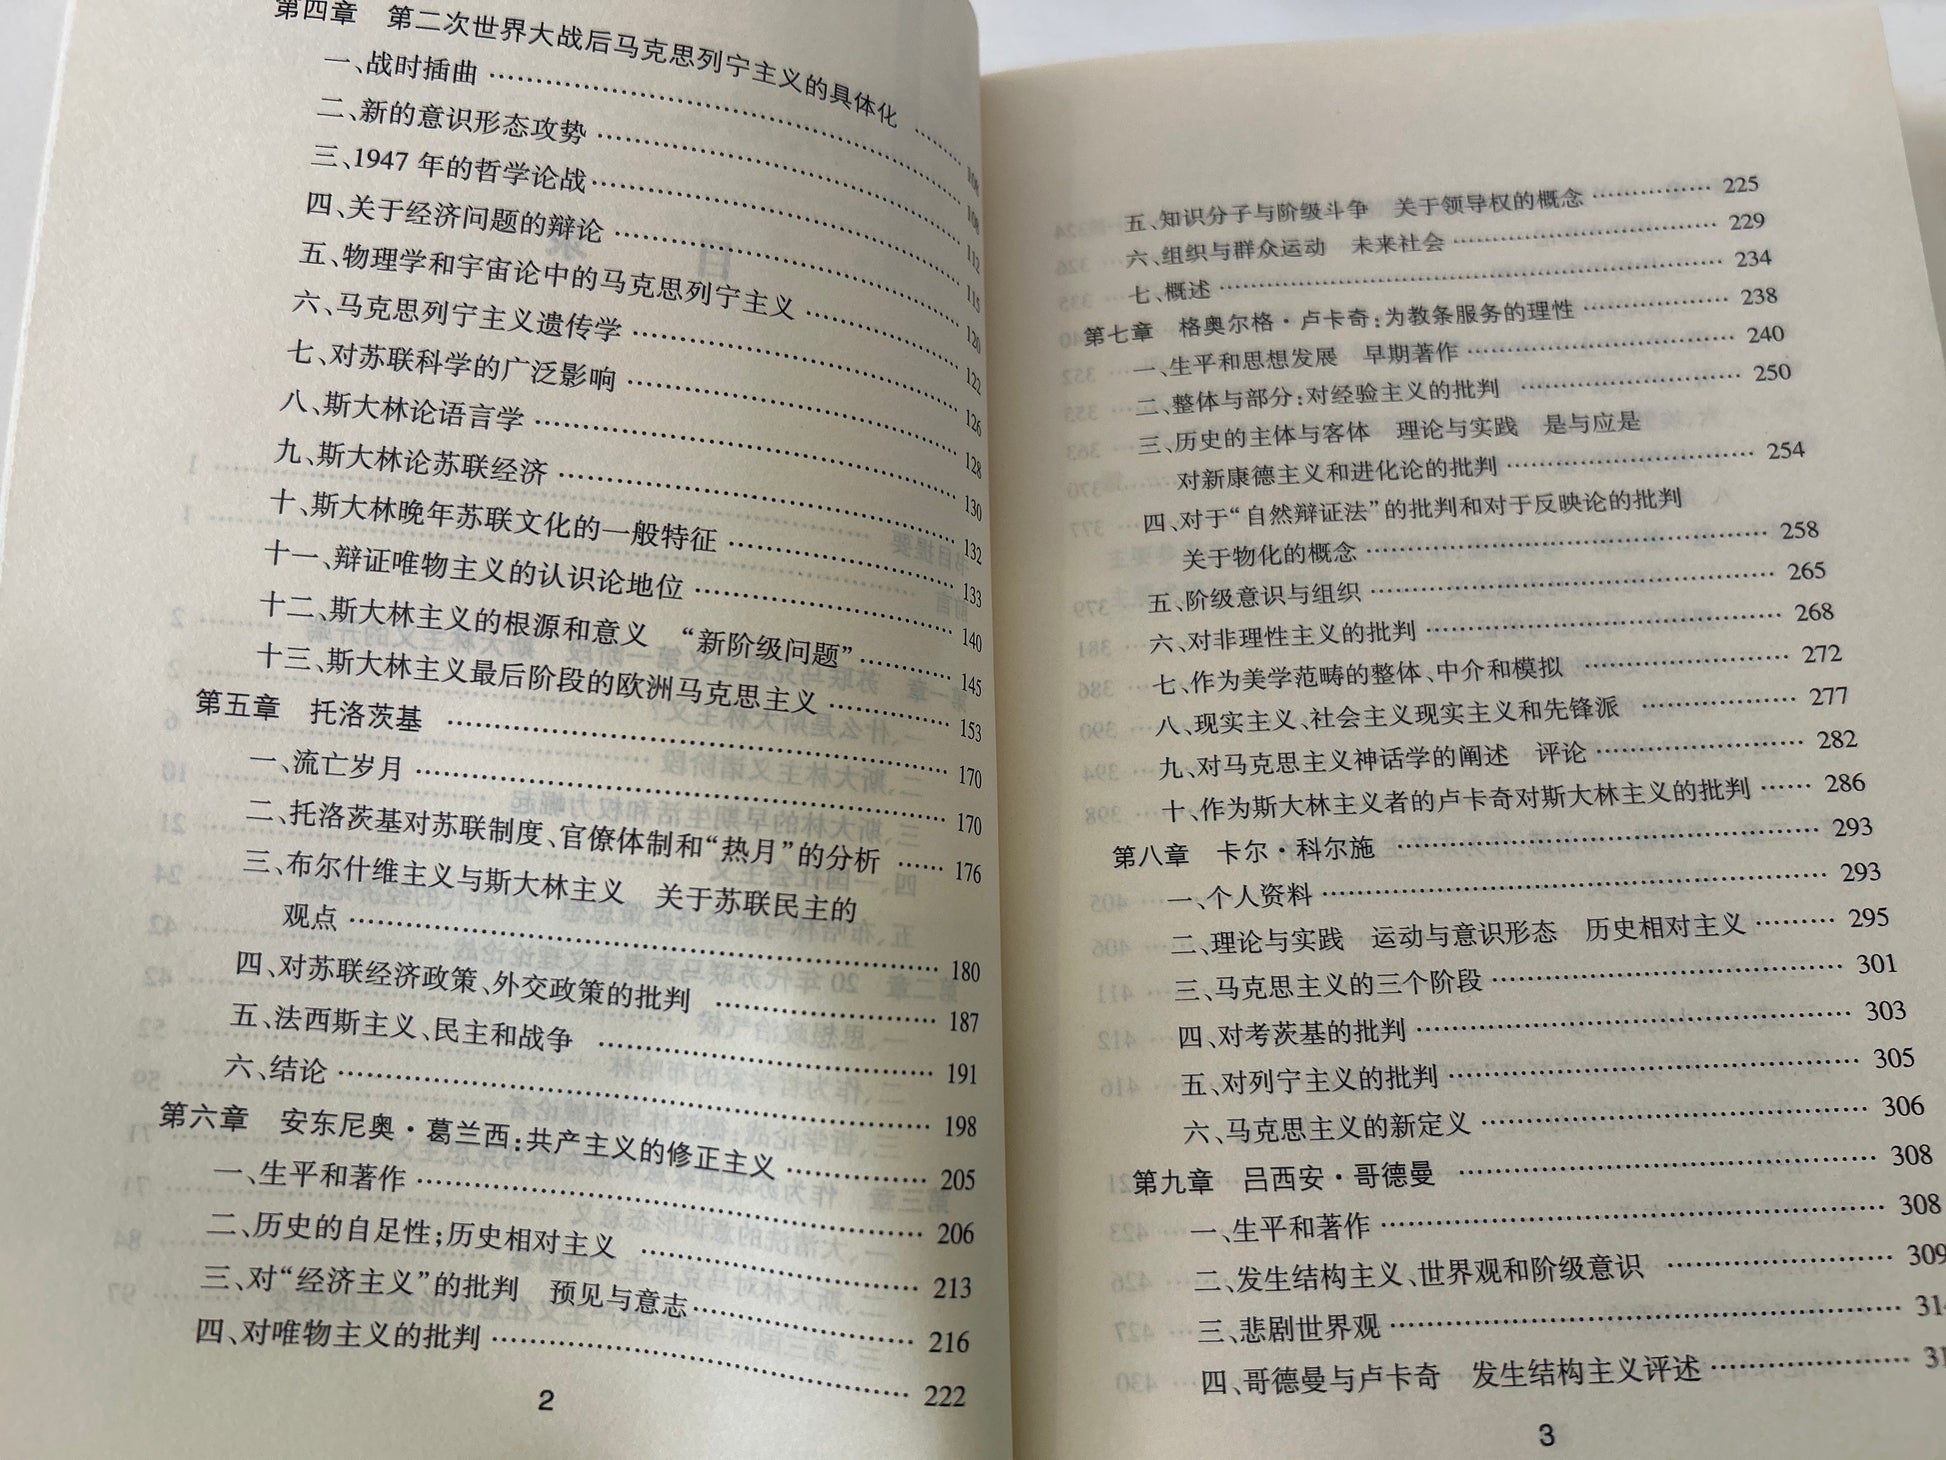 第四章 第二次世界大战后马克思列宁主义的具体化 …… 108
一、战时插曲 …… 108
二、新的意识形态攻势 …… 112
三、1947 年的哲学论战 …… 115
四、关于经济问题的辩论 …… 120
五、物理学和宇宙论中的马克思列宁主义 …… 122
六、马克思列宁主义遗传学 …… 126
七、对苏联科学的广泛影响 …… 128
八、斯大林论语言学 …… 130
九、斯大林论苏联经济 …… 132
十、斯大林晚年苏联文化的一般特征 …… 133
十一、辩证唯物主义的认识论地位 …… 140
十二、斯大林主义的根源和意义 “新阶级问题” …… 145
十三、斯大林主义最后阶段的欧洲马克思主义 …… 153
第五章 托洛茨基 …… 170
一、流亡岁月 …… 170
二、托洛茨基对苏联制度、官僚体制和“热月”的分析 …… 176
三、布尔什维主义与斯大林主义 关于苏联民主的
观点 …… 180
四、对苏联经济政策、外交政策的批判 …… 187
五、法西斯主义、民主和战争 …… 191
六、结论 …… 198
第六章 安东尼奥·葛兰西：共产主义的修正主义 …… 205
一、生平和著作 …… 206
二、历史的自足性；历史相对主义 …… 213
三、对“经济主义”的批判 预见与意志 …… 216
四、对唯物主义的批判 …… 222
2
五、知识分子与阶级斗争 关于领导权的概念 …… 225
六、组织与群众运动 未来社会 …… 229
七、概述 …… 234
第七章 格奥尔格·卢卡奇：为教条服务的理性 …… 238
一、生平和思想发展 早期著作 …… 240
二、整体与部分：对经验主义的批判 …… 250
三、历史的主体与客体 理论与实践 是与应是
对新康德主义和进化论的批判 …… 254
四、对于“自然辩证法”的批判和对于反映论的批判
关于物化的概念 …… 258
五、阶级意识与组织 …… 265
六、对非理性主义的批判 …… 268
七、作为美学范畴的整体、中介和模拟 …… 272
八、现实主义、社会主义现实主义和先锋派 …… 277
九、对马克思主义神话学的阐述 评论 …… 282
十、作为斯大林主义者的卢卡奇对斯大林主义的批判 …… 286
第八章 卡尔·科尔施 …… 293
一、个人资料 …… 293
二、理论与实践 运动与意识形态 历史相对主义 …… 295
三、马克思主义的三个阶段 …… 301
四、对考茨基的批判 …… 303
五、对列宁主义的批判 …… 305
六、马克思主义的新定义 …… 306
第九章 吕西安·哥德曼 …… 308
一、生平和著作 …… 308
二、发生结构主义、世界观和阶级意识 …… 309
三、悲剧世界观 …… 314
四、哥德曼与卢卡奇 发生结构主义评述 ……
3